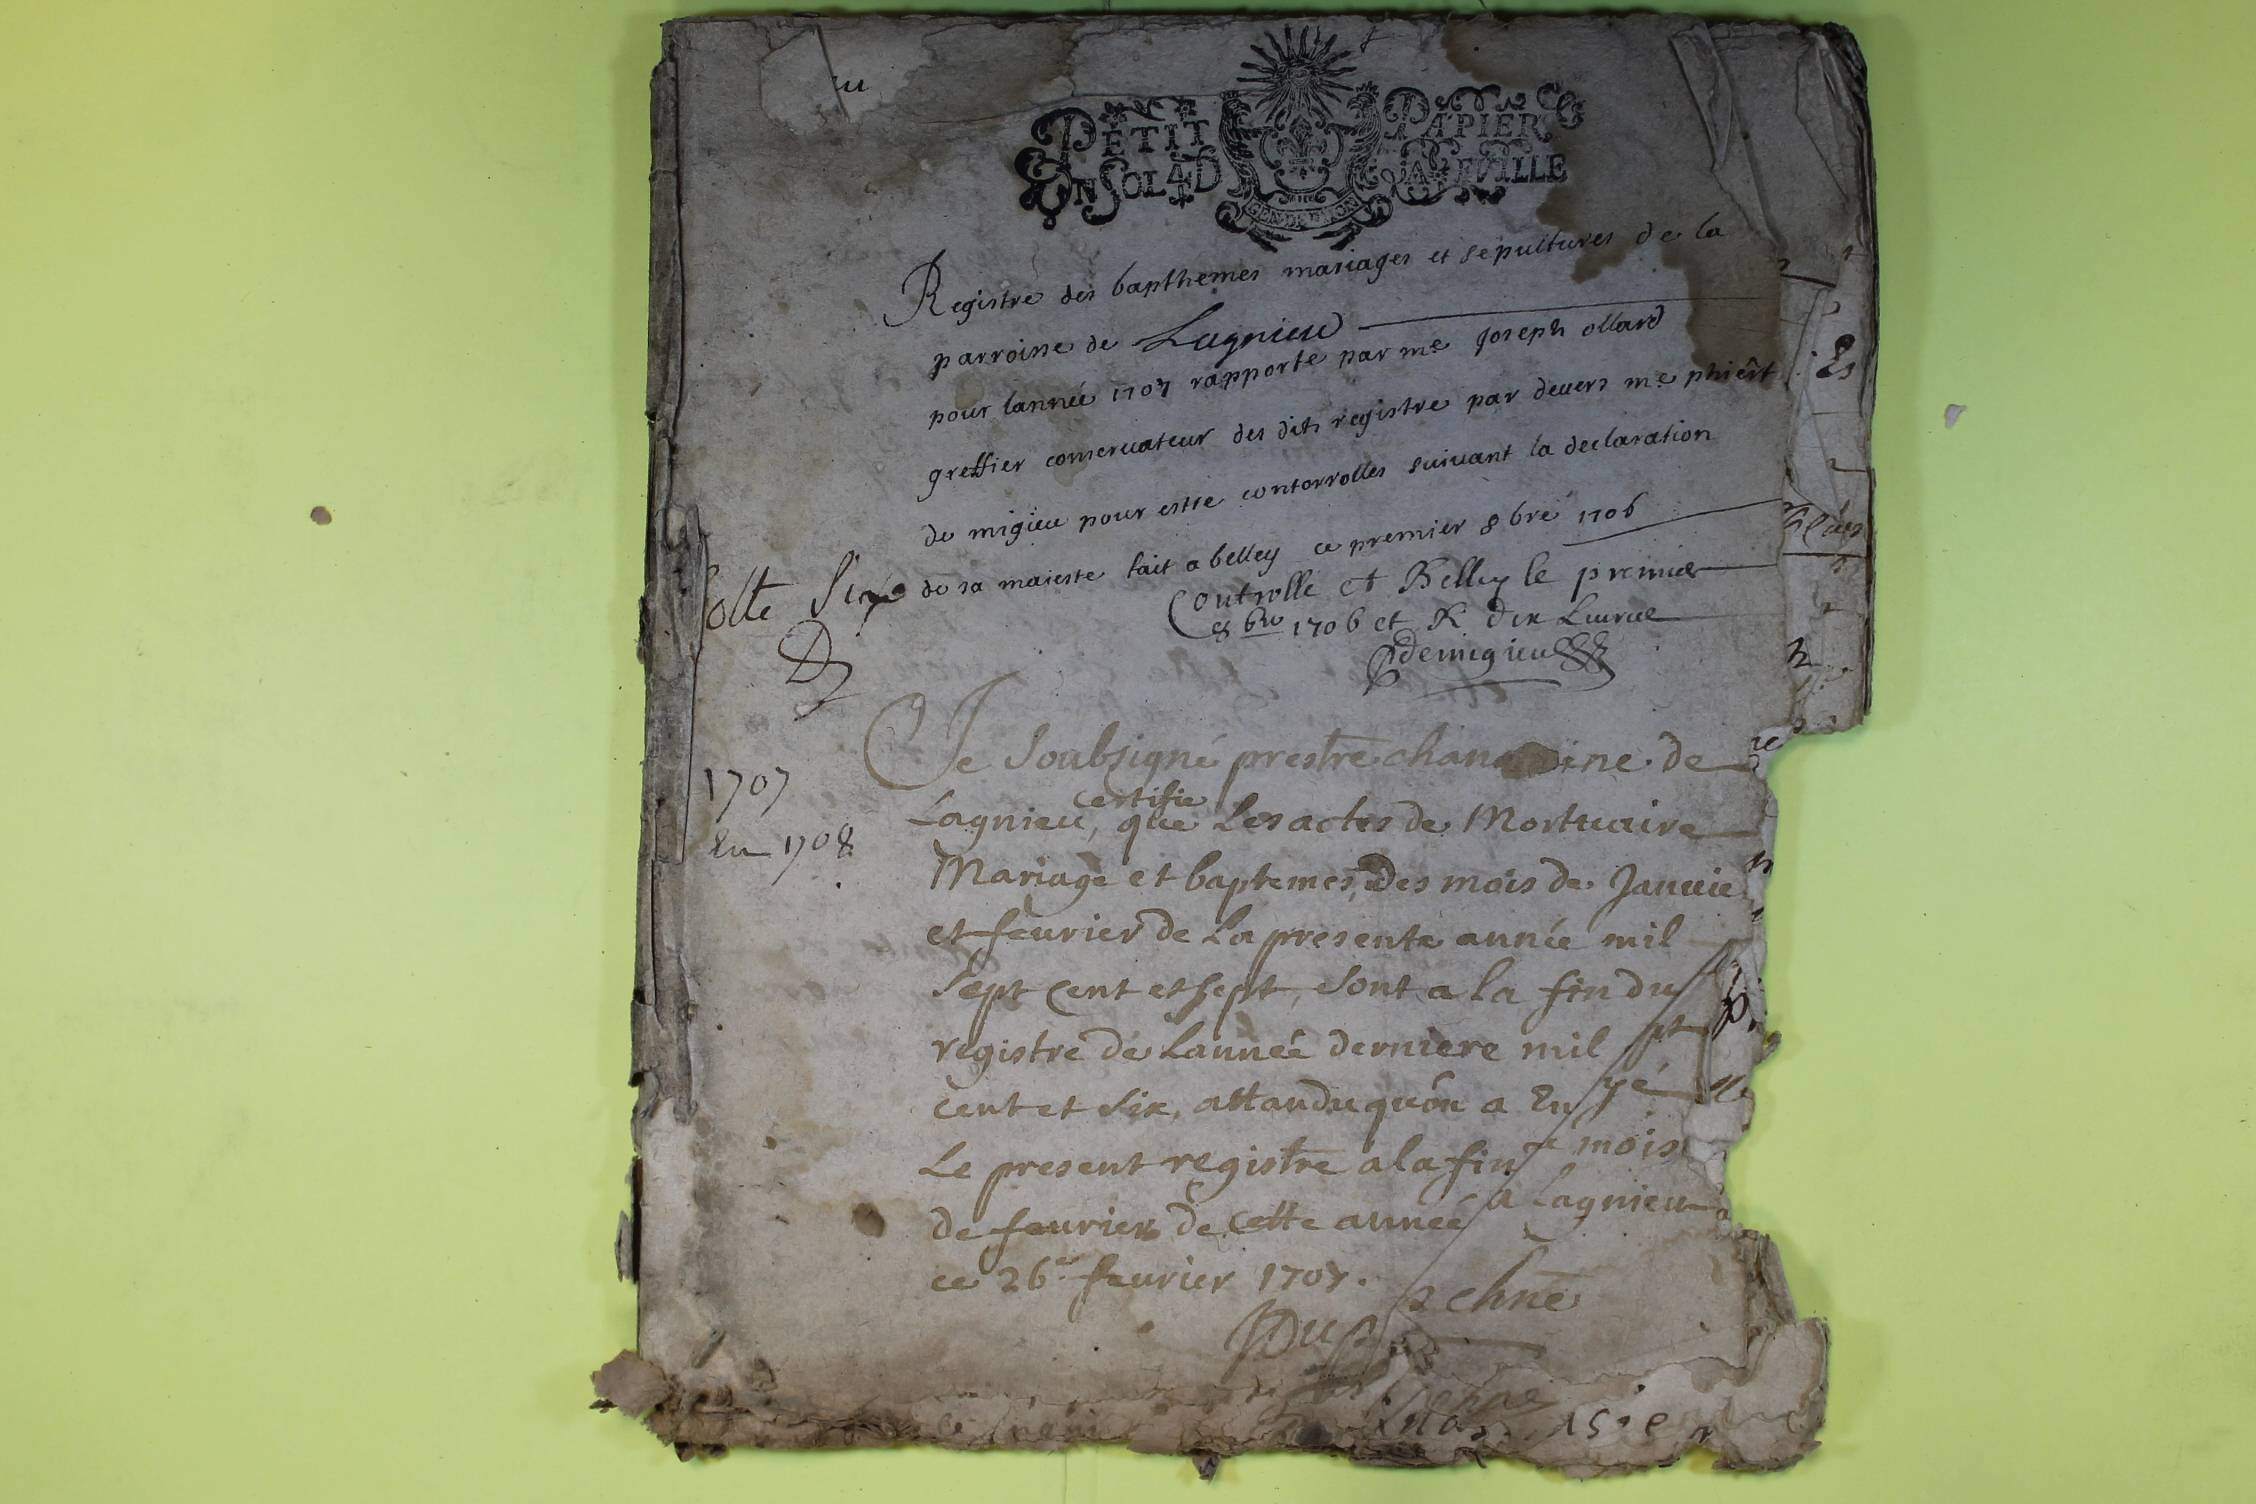 PETIT PAPIER
UN SOL 4 D LA FEVILLE
GEN DE DIION
Registre des bapthemes mariages et sepultures de la
parroisse de Lagnieu
pour lannée 1707 rapporte par me Joseph ollard
greffier conservateur des dits registre par devers me phiert
de migieu pour estre contorrolles suivant la declaration
de sa maieste fait a belley ce premier 8bre 1706
Controlle et Belley le premier
8bre 1706 et R dix Livres
demigieu
Cotte Sixe
1707
En 1708
Je Soubsigné prestre chanoine de
Lagnieu, certifie que Les actes de Mortuaire
Mariage et baptemes, des mois de Janvie
et feurier de La presente année mil
Sept Cent et sept, sont a la fin du
registre de Lannée derniere mil pt
cent et six, attandu quon a En yé
Le present registre a la fin mois
de feurier de cette année a Lagnieu
ce 26e feurier 1707.
chne